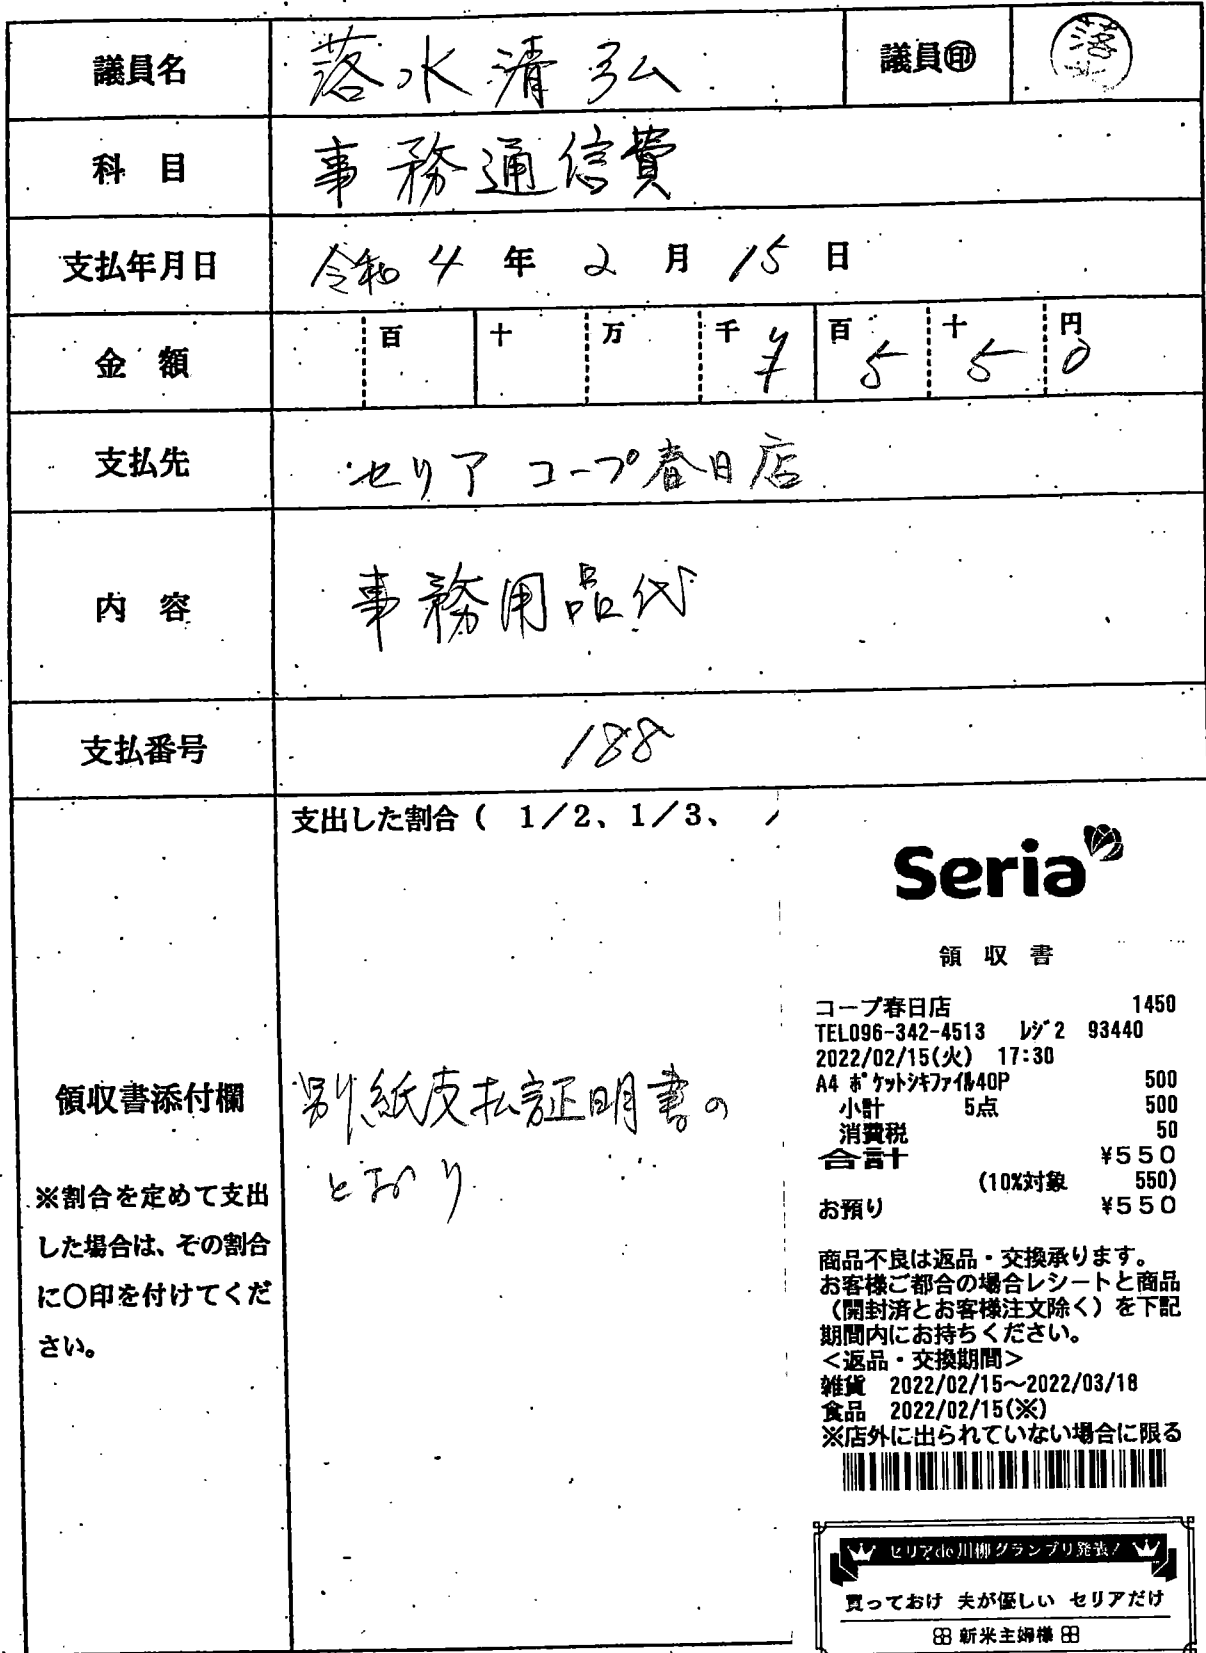 議員名 落水清弘 議員㊞ 落水
科 目 事務通信費
支払年月日 令和 4 年 2 月 15 日
金 額 百 十 万 千 ¥ 百 5 十 5 円 0
支払先 セリア コープ春日店
内 容 事務用品代
支払番号 188
支出した割合( 1/2、1/3、
領収書添付欄
※割合を定めて支出
した場合は、その割合
に○印を付けてくだ
さい。
別紙支払証明書の
とおり
Seria
領 収 書
コープ春日店 1450
TEL096-342-4513 ﾚｼﾞ2 93440
2022/02/15(火) 17:30
A4 ﾎﾟｹｯﾄｼｷﾌｧｲﾙ40P 500
小計 5点 500
消費税 50
合計 ¥550
(10%対象 550)
お預り ¥550
商品不良は返品・交換承ります。
お客様ご都合の場合レシートと商品
(開封済とお客様注文除く)を下記
期間内にお持ちください。
<返品・交換期間>
雑貨 2022/02/15~2022/03/18
食品 2022/02/15(※)
※店外に出られていない場合に限る
セリアde川柳グランプリ発表!
買っておけ 夫が優しい セリアだけ
新米主婦様